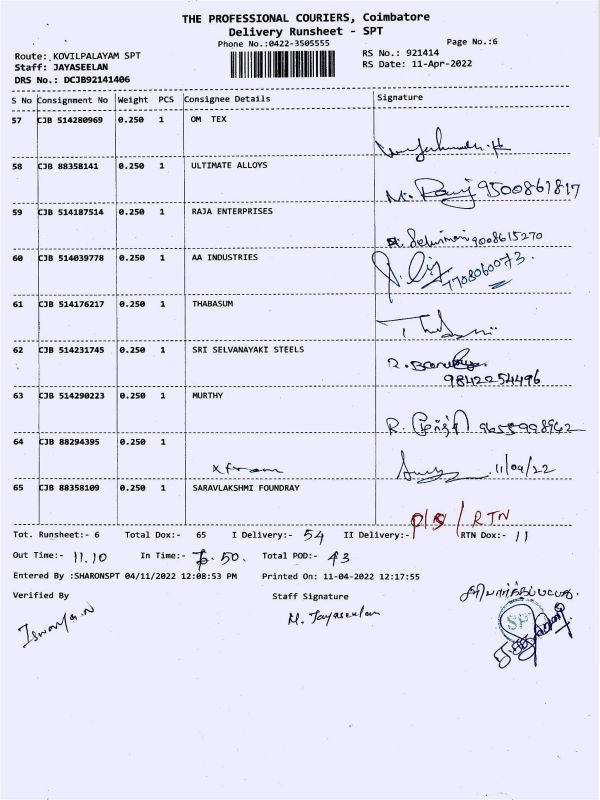 THE PROFESSIONAL COURIERS, Coimbatore
Delivery Runsheet - SPT
Phone No.:0422-3505555
Page No.:6
Route: KOVILPALAYAM SPT
RS No.: 921414
Staff: JAYASEELAN
RS Date: 11-Apr-2022
DRS No.: DCJB92141406
S No Consignment No Weight PCS Consignee Details Signature
57 CJB 514280969 0.250 1 OM TEX
58 CJB 88358141 0.250 1 ULTIMATE ALLOYS
9500861817
59 CJB 514187514 0.250 1 RAJA ENTERPRISES
9008615270
60 CJB 514039778 0.250 1 AA INDUSTRIES
7708060073.
61 CJB 514176217 0.250 1 THABASUM
62 CJB 514231745 0.250 1 SRI SELVANAYAKI STEELS
9842254496
63 CJB 514290223 0.250 1 MURTHY
R. 9655998942
64 CJB 88294395 0.250 1
11/04/22
65 CJB 88358109 0.250 1 SARAVLAKSHMI FOUNDRAY
/ RTN
Tot. Runsheet:- 6 Total Dox:- 65 I Delivery:- 54 II Delivery:- RTN Dox:- 11
Out Time:- 11.10 In Time:- 7.50. Total POD:- 43
Entered By :SHARONSPT 04/11/2022 12:08:53 PM Printed On: 11-04-2022 12:17:55
Verified By Staff Signature
M. Jayaseelan
SP